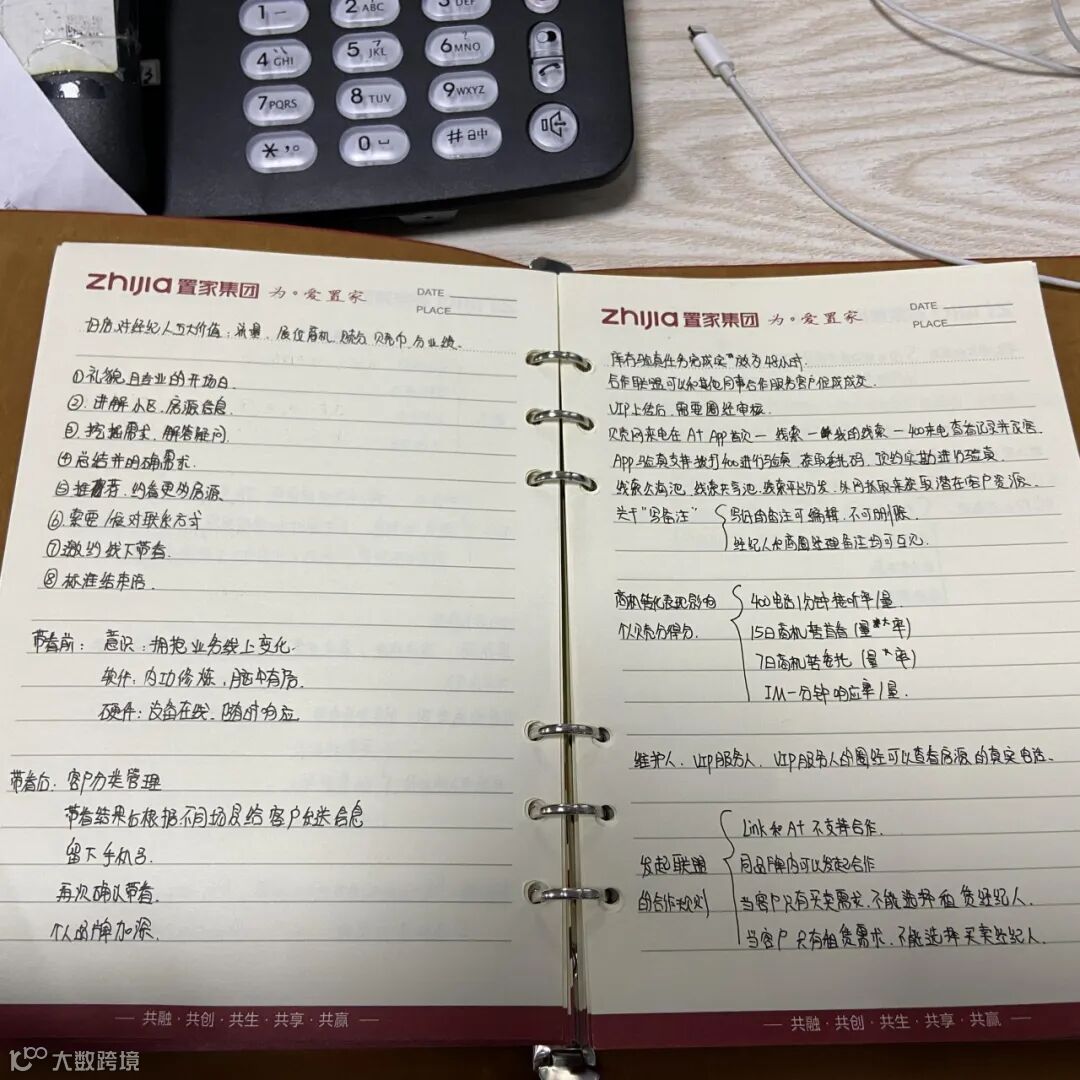 1
2 ABC
3 DEF
4 GHI
5 JKL
6 MNO
7 PQRS
8 TUV
9 WXYZ
*
0
# 日中
zhijia 置家集团 为·爱置家
DATE
PLACE
扫房对经纪人五大价值：流量、展位商机、贝壳币、业绩。
①礼貌且专业的开场白
②讲解小区、房源信息.
③挖掘需求、解答疑问.
④总结并明确需求.
⑤推荐、约看更多房源
⑥索要/核对联系方式
⑦邀约线下带看.
⑧标准结束语.
带看前：意识：拥抱业务线上变化.
软件：内功修炼，脑中有房.
硬件：设备在线，随时响应
带看后：客户分类管理
带看结果后根据不同场景给客户发送信息
留下手机号.
再次确认带看.
个人品牌加深.
共融·共创·共生·共享·共赢
zhijia 置家集团 为·爱置家
DATE
PLACE
库存验真任务完成实效为48小时.
合作联盟可以和其他同事合作服务客户促成成交.
VIP上传后，需要圈经审核.
贝壳网来电在A+ App首页一线索一我的线索一400来电查看记录并改客.
App验真支持拨打400进行验真，获取委托码，预约实勘进行验真.
线索公商池，线索共享池，线索平台分发，外网抓取来获取潜在客户资源.
关于"写备注" 写后的备注可编辑，不可删除.
经纪人和商圈经理备注均可互见.
商机转化表现影响 400电话1分钟接听率/量.
个人贝壳分得分. 15日商机转首看（量*率）
7日商机转委托（量*率）
IM一分钟响应率/量.
维护人、VIP服务人、VIP服务人的圈经可以查看房源的真实电话.
Link和A+不支持合作.
发起联盟 同品牌内可以发起合作
的合作规则 当客户只有买卖需求，不能选择租赁经纪人.
当客户只有租赁需求，不能选择买卖经纪人.
共融·共创·共生·共享·共赢
大数跨境